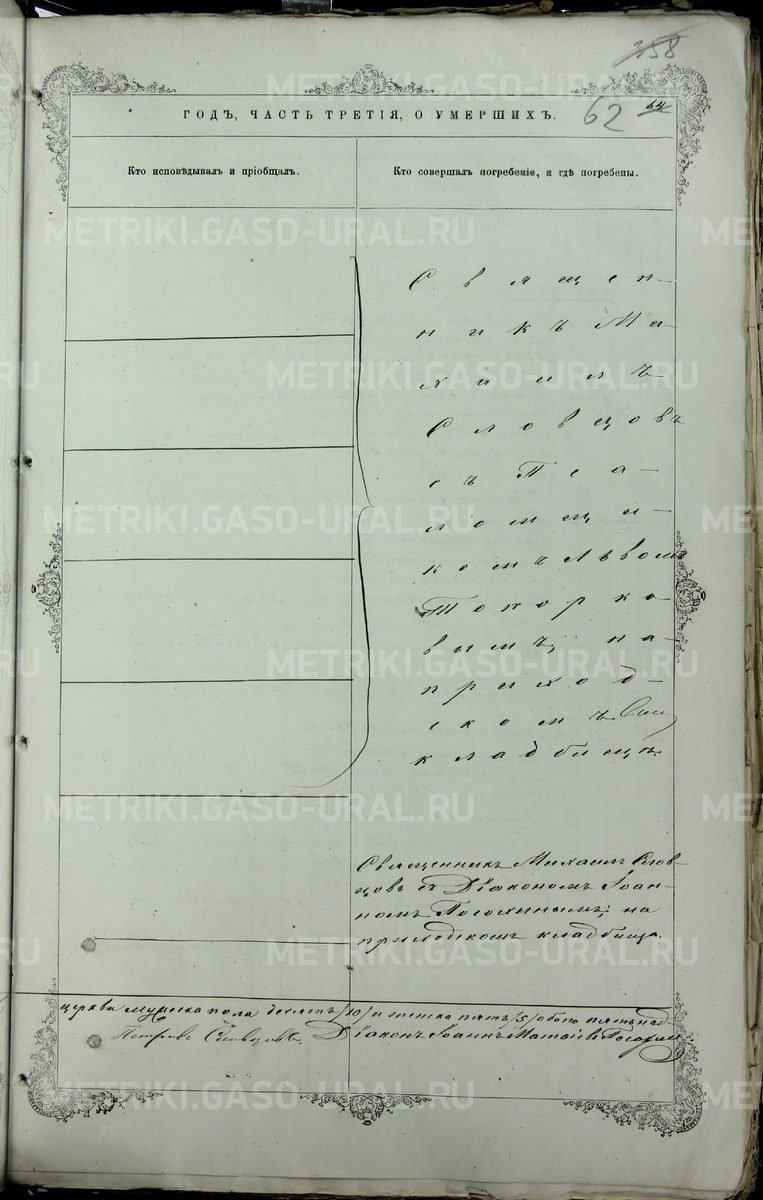 358
62 64
ГОДЪ, ЧАСТЬ ТРЕТІЯ, О УМЕРШИХЪ.
Кто исповѣдывалъ и пріобщалъ.
Кто совершалъ погребеніе, и гдѣ погребены.
Священ-
никъ Ми-
хаилъ
Словцовъ
съ Пса-
ломщи-
комъ Львомъ
Топорко-
вымъ, на
приход-
скомъ
кладбищѣ.
Священникъ Михаилъ Слов-
цовъ съ Діакономъ Іоан-
номъ Посохинымъ; на
приходскомъ кладбищѣ.
церкви мужеска пола десять /10/ и женска пять /5/ обоего пятьнад
Петровъ Словцовъ, Діаконъ Іоаннъ
METRIKI.GASO-URAL.RU